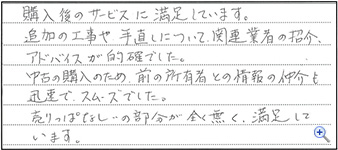 購入後のサービスに満足しています。
追加の工事や、手直しについて、関連業者の紹介、
アドバイスが的確でした。
中古の購入のため、前の所有者との情報の仲介も
迅速で、スムーズでした。
売りっぱなし…の部分が全く無く、満足して
います。